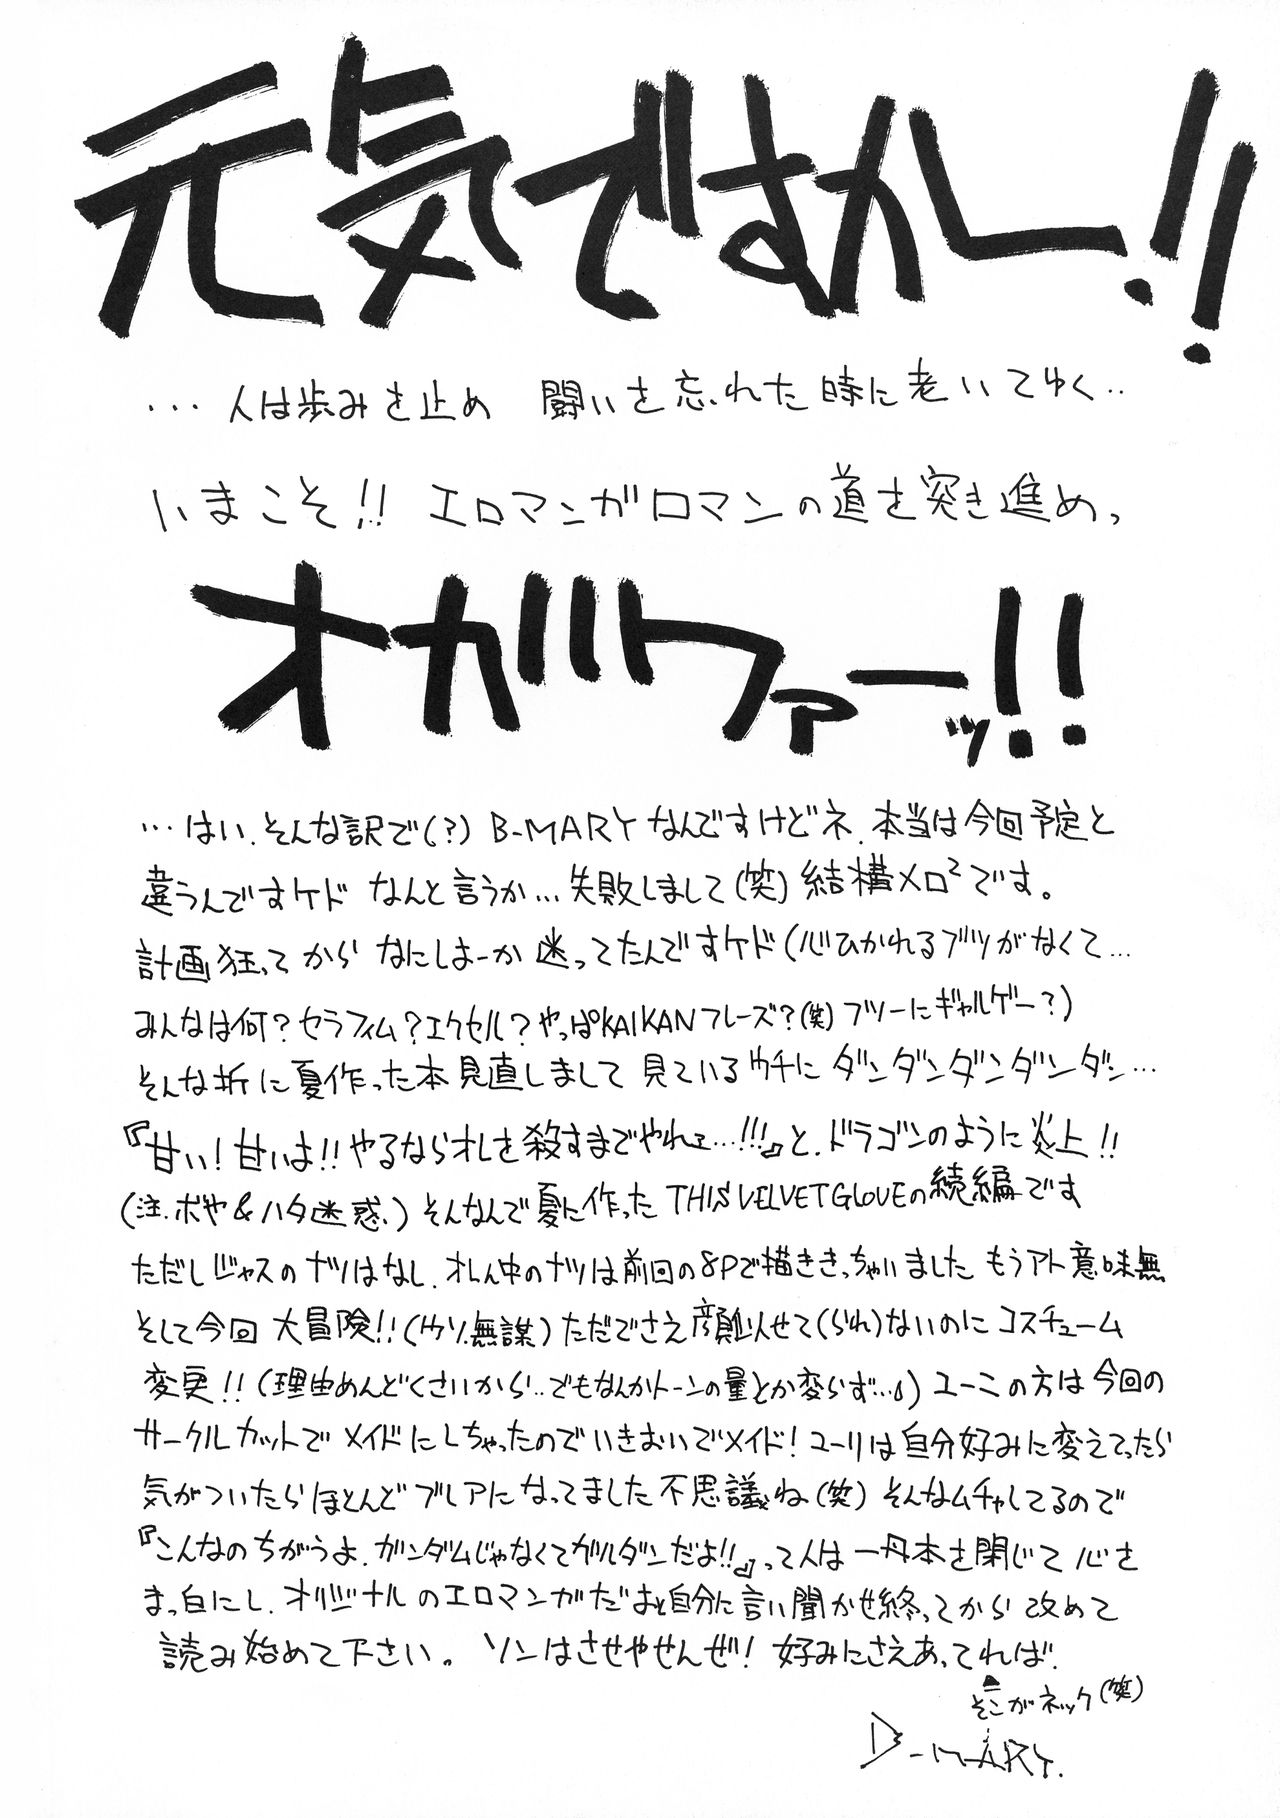 元気ですかー!!
…人は歩みを止め 闘いを忘れた時に老いてゆく…
いまこそ!! エロマンガロマンの道を突き進めっ
オガワァーッ!!
…はい、そんな訳で(?) B-MARYなんですけどネ、本当は今回予定と
違うんですケド なんと言うか…失敗しまして(笑)結構メロ²です。
計画狂ってから なにしよーか迷ってたんですケド(心ひかれるブツがなくて…
みんなは何?セラフィム?エクセル?やっぱKAIKANフレーズ?(笑)フツーにギャルゲー?)
そんな折に夏作った本見直しまして見ているウチに ダンダンダンダンダン…
『甘い!甘いよ!!やるならオレを殺すまでやれェ…!!!』と、ドラゴンのように炎上!!
(注.ボヤ&ハタ迷惑、)そんなんで夏に作ったTHIS VELVET GLOVEの続編です
ただしジャスのナソはなし、オレん中のナソは前回の8Pで描ききっちゃいました もうアト意味無
そして今回 大冒険!!(ウソ.無謀)ただでさえ顔似せて(られ)ないのにコスチューム
変更!!(理由めんどくさいから‥でもなんかトーンの量とか変らず…)ユーミの方は今回の
サークルカットでメイドにしちゃったのでいきおいでメイド!ユーリは自分好みに変えてったら
気がついたらほとんどブレアになってました不思議ね(笑)そんなムチャしてるので
『こんなのちがうよ、ガンダムじゃなくてガルダンだよ!!』って人は一丹本を閉じて心を
まっ白にし、オリジナルのエロマンガだよと自分に言い聞かせ終ってから改めて
読み始めて下さい。ソンはさせやせんぜ!好みにさえあってれば、
そこがネック(笑)
B-MARY.